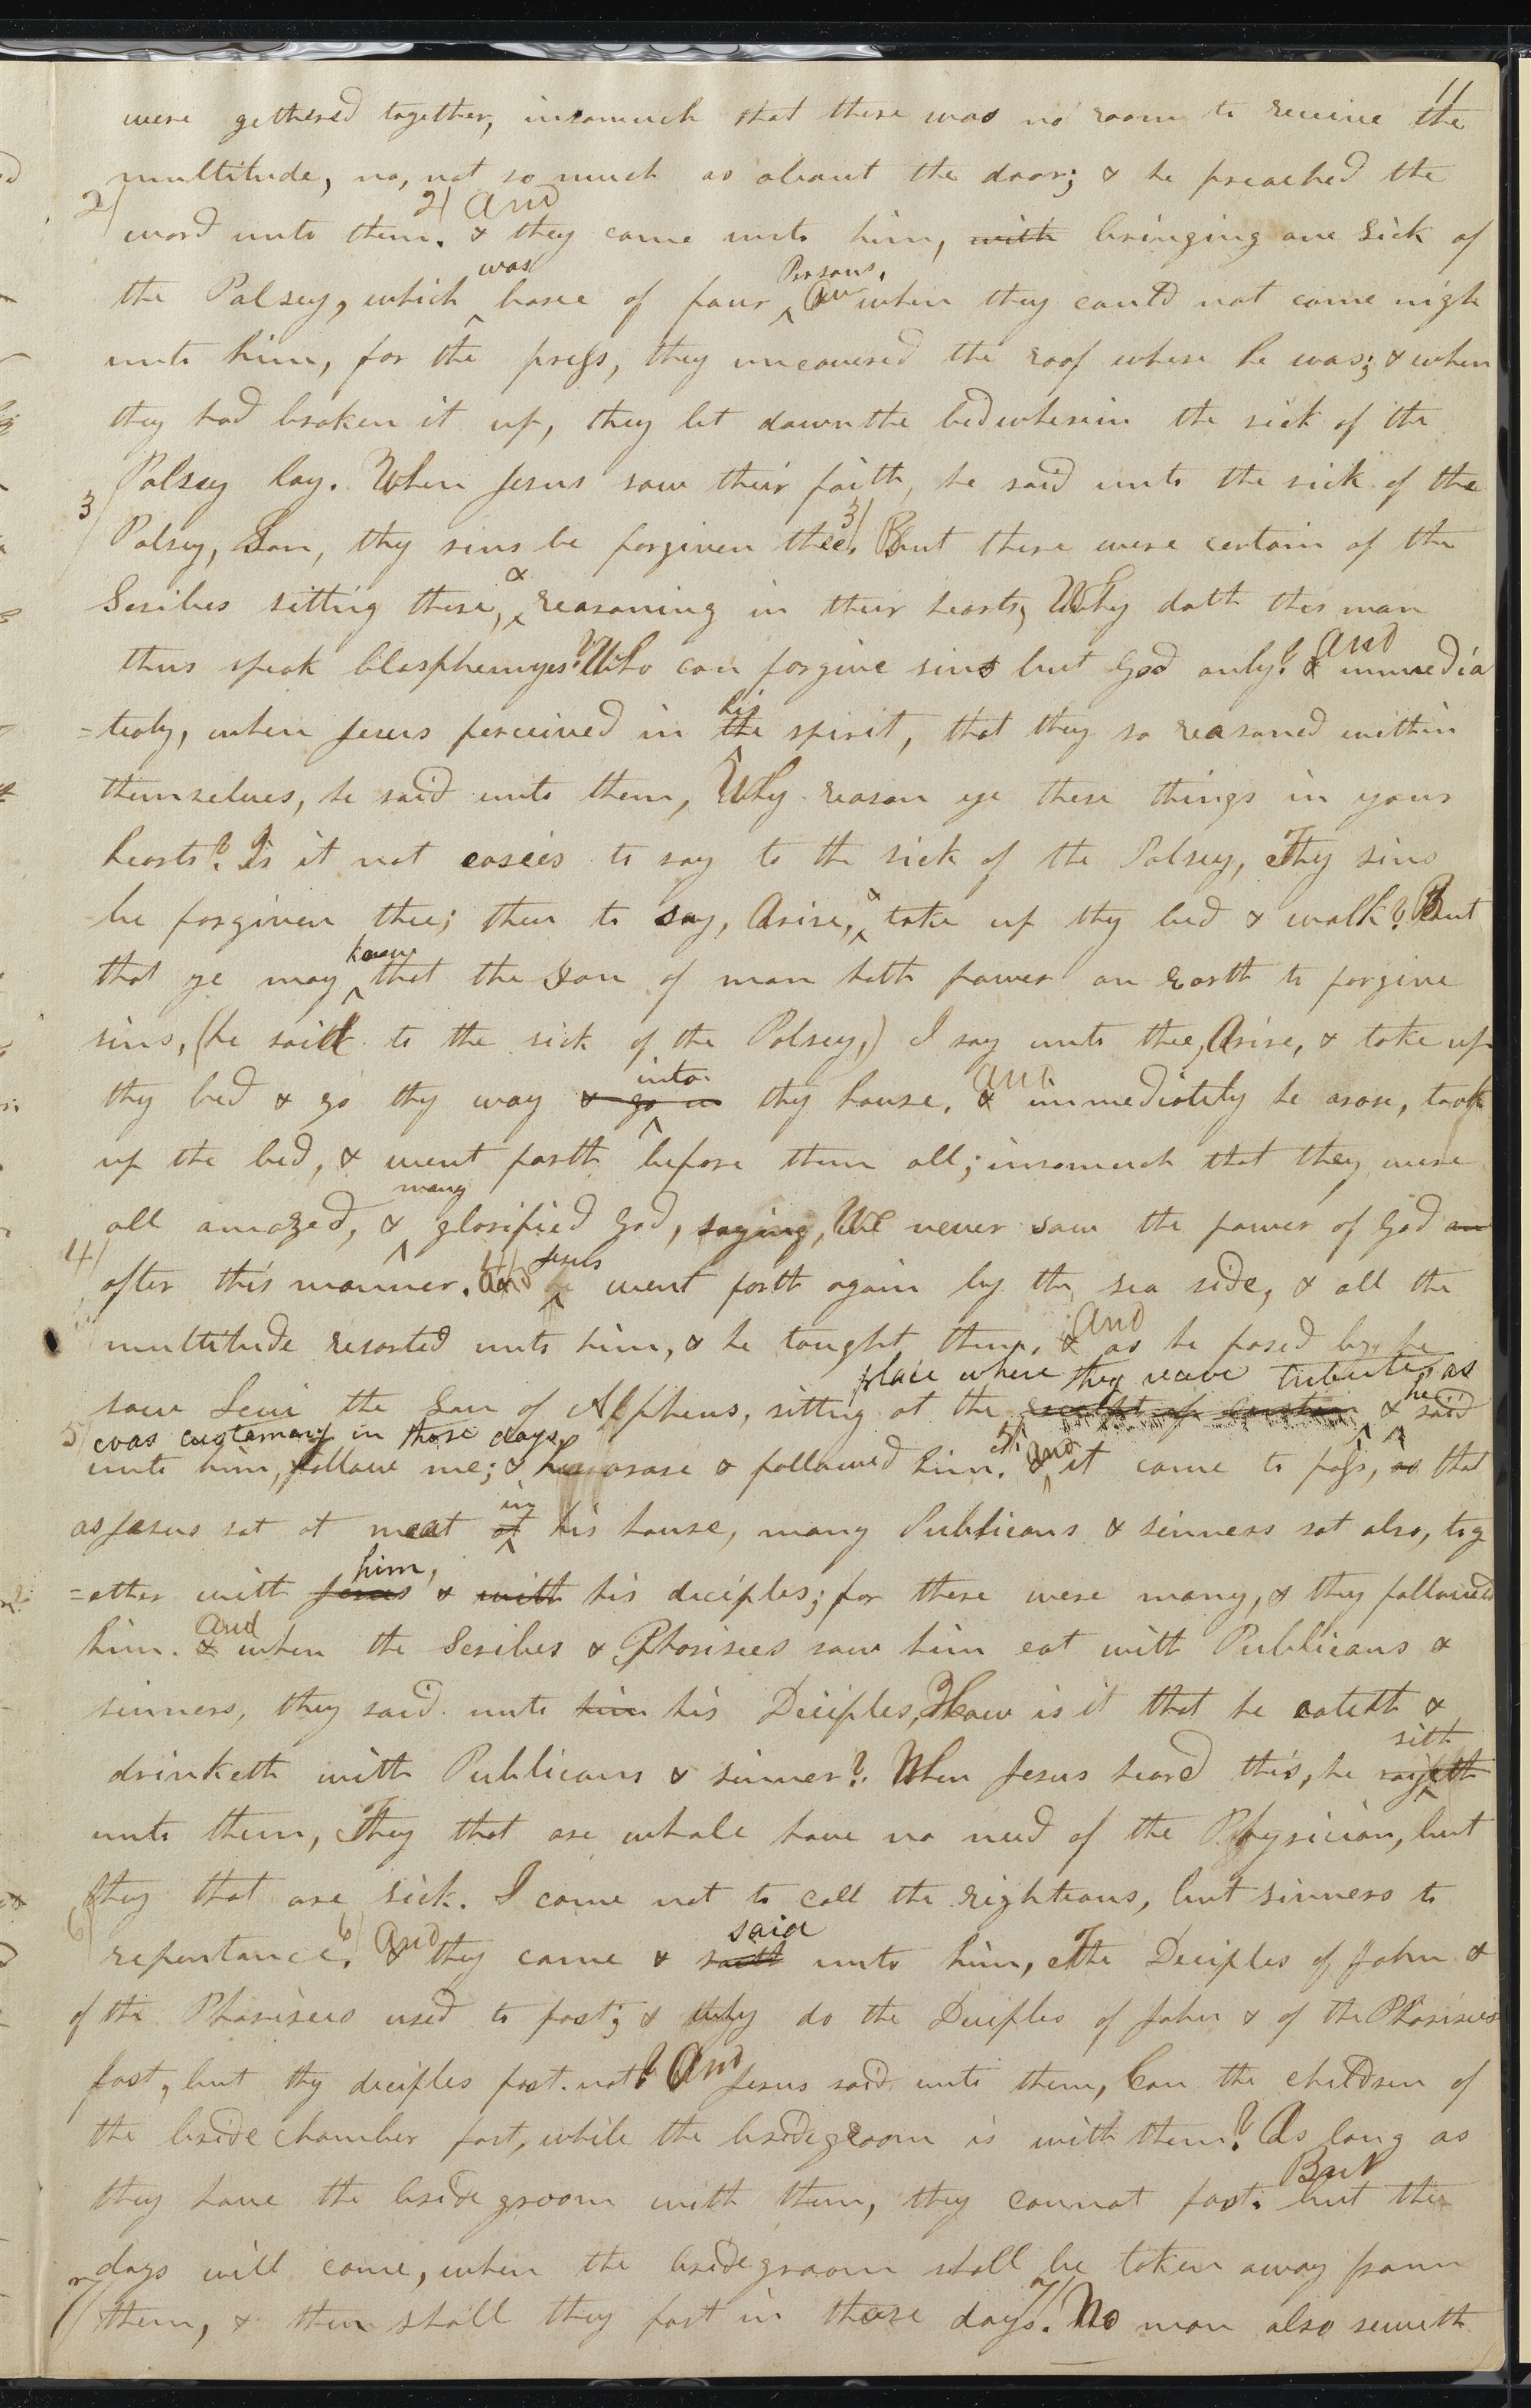 11
were gethered together, insomuch that there was no room to receive the
multitude, no, not so much as about the door; & he preached the
2/ word unto them. 2/ & And they came unto him, with bringing one sick of
the Palsey, which was borne of four Persons. And when they could not come nigh
unto him, for the press, they uncovered the roof where he was; & when
they had broken it up, they let down the bed wherein the sick of the
Palsey lay. When Jesus saw their faith, he said unto the sick of the
3/ Palsey, Son, thy sins be forgiven thee. 3/ But there were certain of the
Scribes sitting there, & reasoning in their hearts, Why doth this man
thus speak blasphemyes? Who can forgive sins but God only? & And immedia
=tealy, when Jesus perceived in the his spirit, that they so reasoned within
themselves, he said unto them, Why reason ye these things in your
hearts? Is it not easies to say to the sick of the Palsey, Thy sins
be forgiven thee; then to say, Arise, & take up thy bed & walk? But
that ye may know that the Son of man hath power on earth to forgive
sins, (he said to the sick of the Palsey,) I say unto thee, Arise, & take up
thy bed & go thy way & go in into thy house. & And immediately he arose, took
up the bed, & went forth before them all; insomuch that they were
all amazed, & many glorified God, saying, We never saw the power of God on
4/ after this manner. 4/ And Jesus went forth again by the sea side, & all the
multitude resorted unto him, & he taught them. & And as he pased by, he
saw Levi the Son of Alpheus, sitting at the place where they receive tribute, as
was customary in those days, & he said
5/ unto him, follow me; & he arose & followed him. 5/ And it came to pass, as that
as Jesus sat at meat at in his house, many Publicans & sinners sat also, tog
=ether with Jesus him, & with his deciples; for there were many, & they followed
him. & And when the Scribes & Pharisees saw him eat with Publicans &
sinners, they said unto him his Deciples, How is it that he eateth &
drinketh with Publicans & sinner? When Jesus heard this, he sayeth sith
unto them, They that are whole have no need of the Physician, but
they that are sick. I came not to call the righteous, but sinners to
6/ repentance. 6/ & And they came & saith said unto him, The Deciples of John &
of the Pharisees used to fast; & why do the Deciples of John & of the Pharisees
fast, but thy deciples fast not? And Jesus said unto them, Can the children of
the bridechamber fast, while the bridegroom is with them? As long as
they have the bridegroom with them, they cannot fast. but But the
days will come, when the bridegroom shall be taken away from
7/ them, & then shall they fast in those days. 7/ No man also seweth